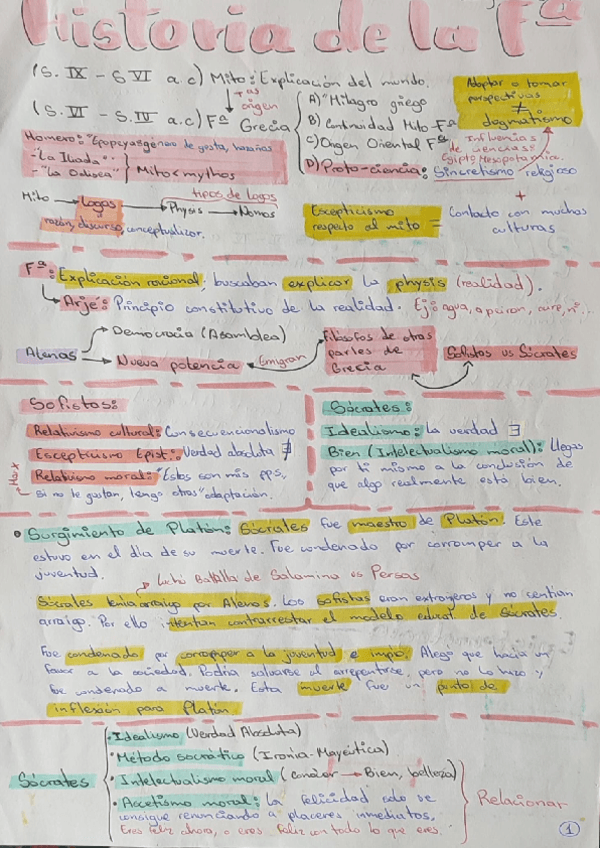 Historia de la Fª
(S. IX - S VI a.c) Mito: Explicación del mundo.
+as origen
(S. VI - S. IV a.c) Fª Grecia
A) "Milagro griego
B) Continuidad Mito-Fª
C) Origen Oriental Fª
D) Proto-ciencia: Sincretismo religioso
+
Contacto con muchas culturas
Adoptar o tomar perspectivas ≠ dogmatismo
Influencias de ciencias: Egipto, Mesopotamica.
Homero: "Epopeyas genero de gesta, hazañas
- "La Iliada"
- "La Odisea" } Mito < mythos
tipos de logos
Mito → Logos → Physis → Nomos
razón, discurso, conceptualizar.
Escepticismo respecto al mito =
Fª: Explicación racional; buscaban explicar la physis (realidad).
Arjé: Principio constitutivo de la realidad. Ej: agua, apeiron, aire, nº...
Atenas
Democracia (Asamblea)
Nueva potencia
Emigran
Filósofos de otras partes de Grecia
Sofistas vs Sócrates
Sofistas:
Relativismo cultural: Consecuencionalismo
Escepticismo Epist: Verdad absoluta ∄
Relativismo moral: "Estos son mis pps,
si no te gustan, tengo otros" adaptación.
Sócrates:
Idealismo: La verdad ∃
Bien (Intelectualismo moral): Llegas
por ti mismo a la conclusión de
que algo realmente está bien.
• Surgimiento de Platón: Sócrates fue maestro de Platón. Este
estuvo en el día de su muerte. Fue condenado por corromper a la
juventud.
Luchó Batalla de Salamina vs Persas
Sócrates tenía arraigo por Atenas. Los sofistas eran extranjeros y no sentían
arraigo. Por ello intentan contrarrestar el modelo educat. de Sócrates.
Fue condenado por corromper a la juventud e impío. Alego que hacía un
favor a la sociedad. Podría salvarse al arrepentirse, pero no lo hizo y
fue condenado a muerte. Esta muerte fue un punto de
inflexión para Platón.
Sócrates
• Idealismo (Verdad Absoluta)
• Método socrático (Ironía-Mayéutica)
• Intelectualismo moral (conocer → Bien, belleza)
• Ascetismo moral: La felicidad solo se
consigue renunciando a placeres inmediatos,
Eres feliz ahora, o eres feliz con todo lo que eres.
Relacionar
1